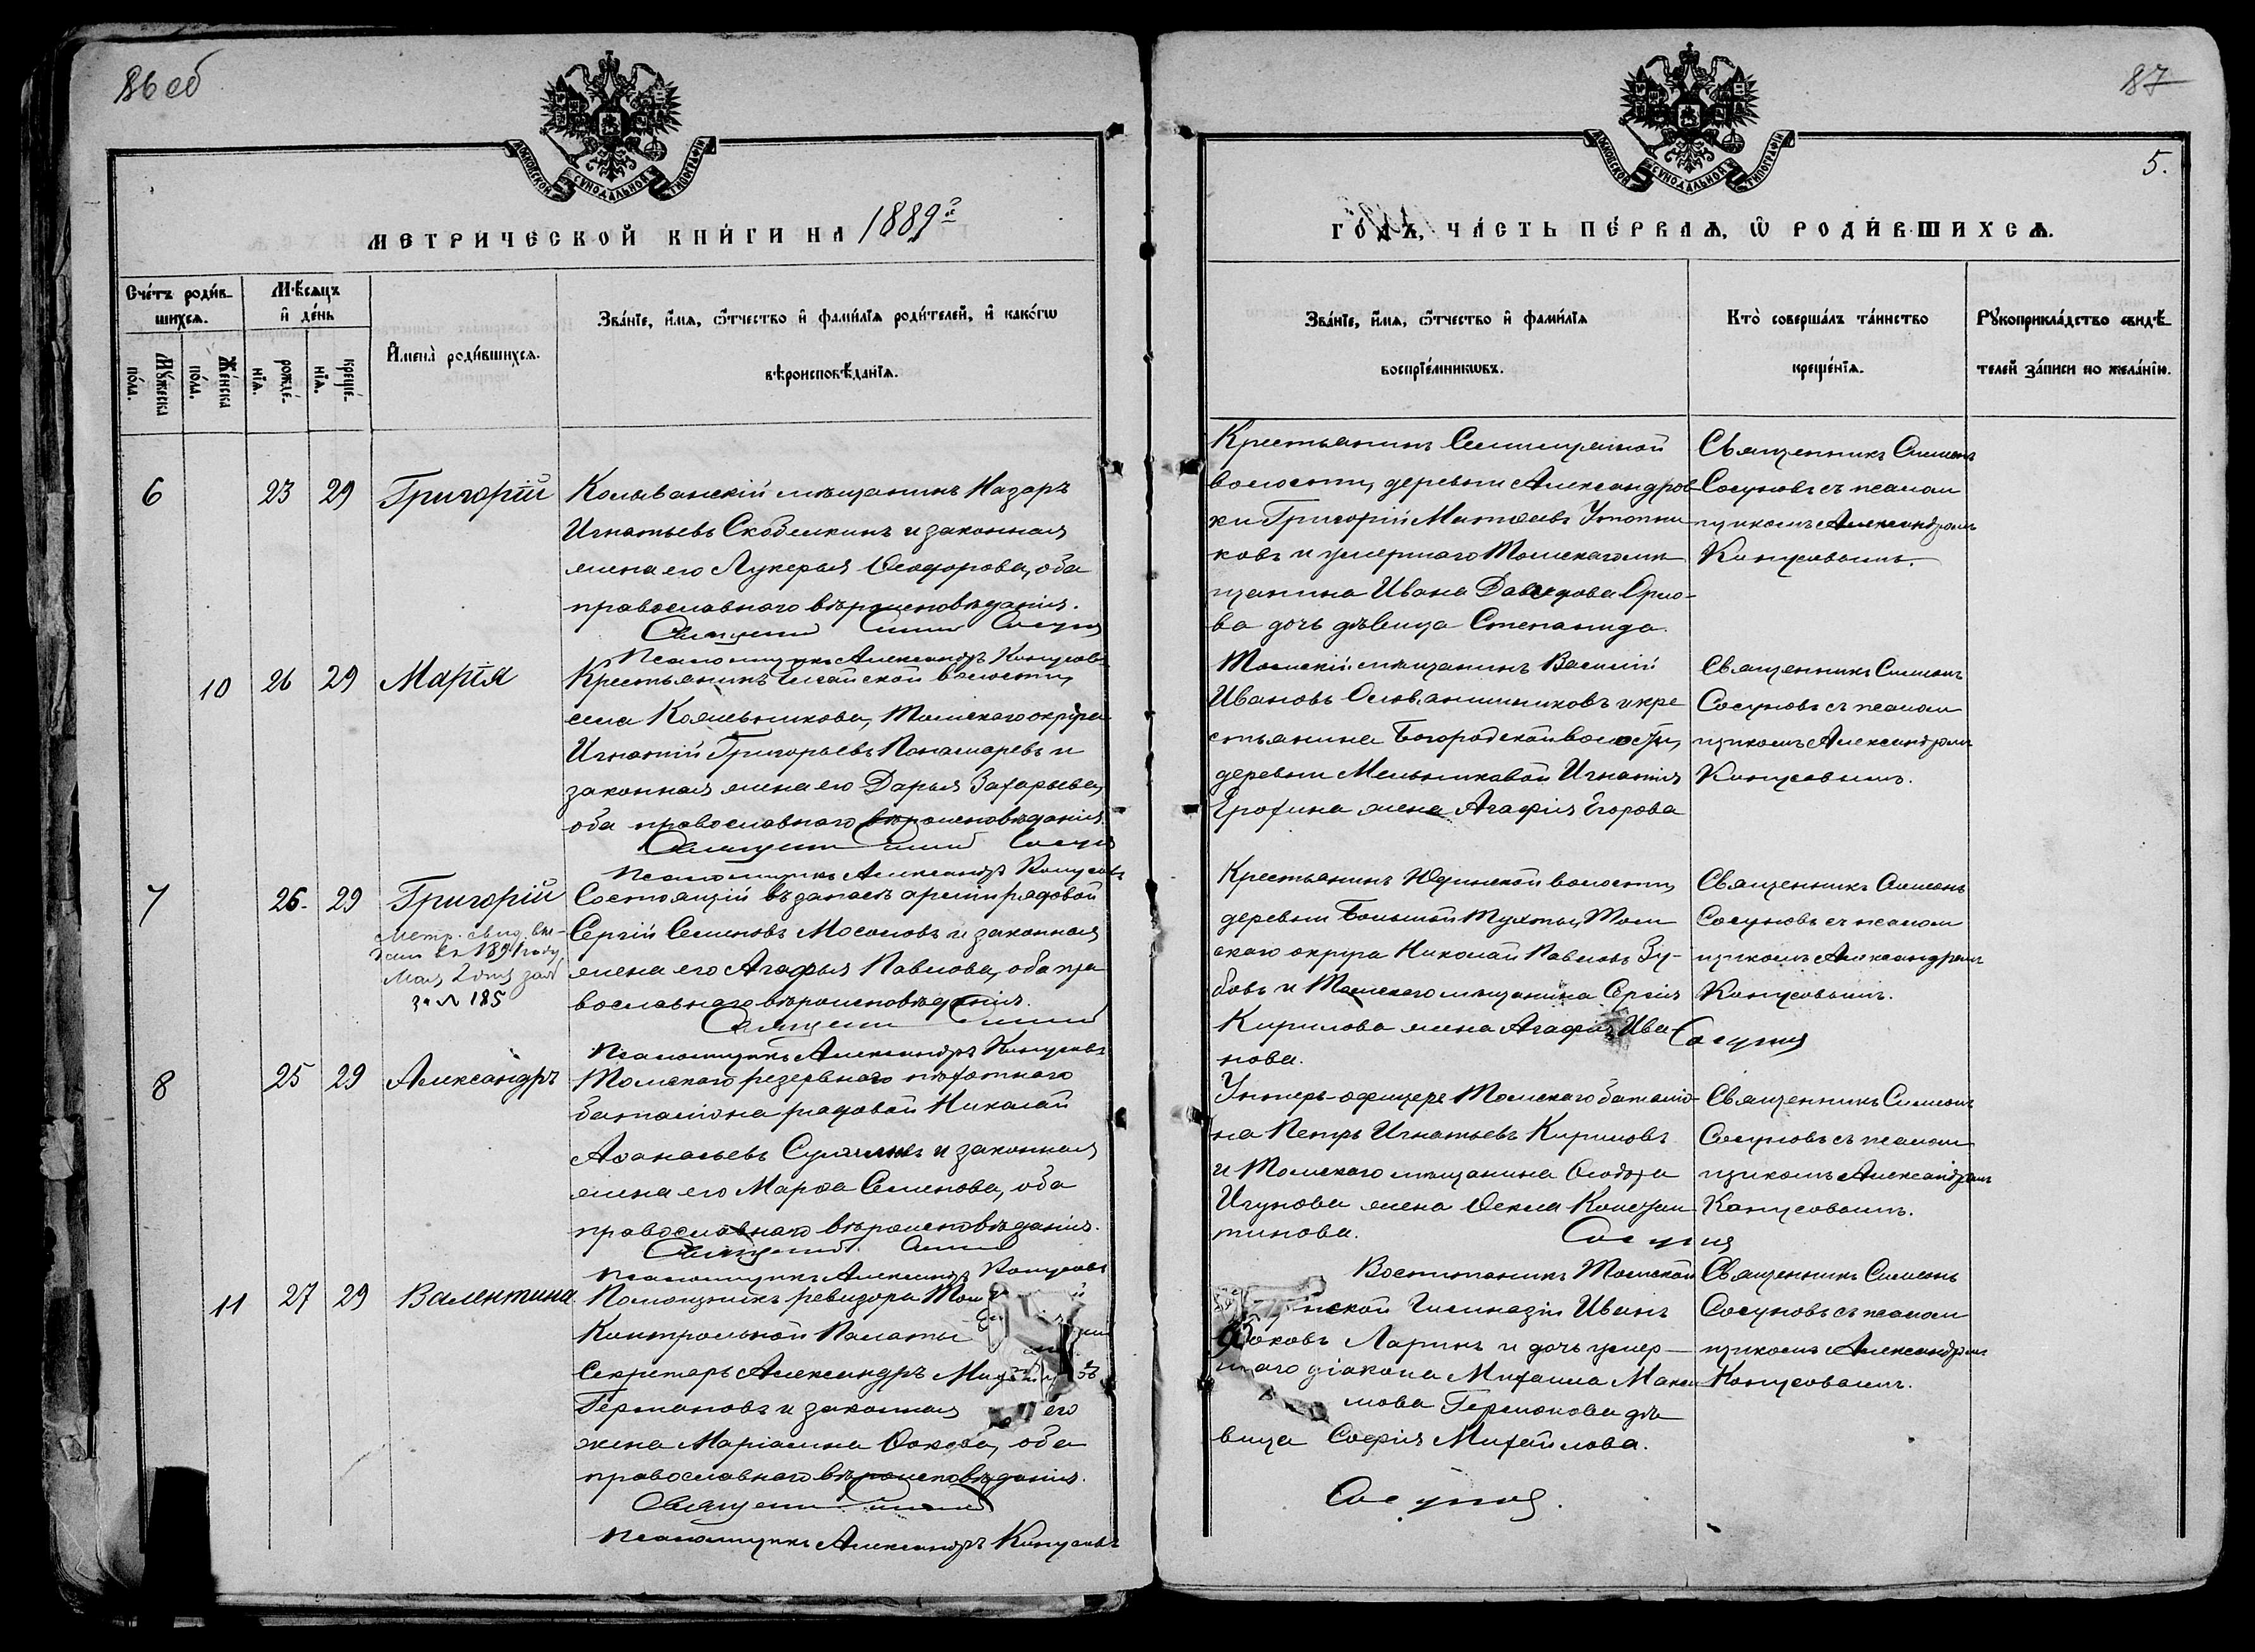 86 об
МОСКОВСКОЙ СѴНОДАЛЬНОЙ ТИПОГРАФІИ
МЕТРИЧЕСКОЙ КНИ́ГИ НА 1889й
Сче́тъ роди́в-
шихсѧ.
Мꙋ́жеска
по́ла.
Же́нска
по́ла.
Мѣ́сѧцъ
и҆ де́нь
рожде́-
нїѧ.
креще́-
нїѧ.
И҆мена̀ роди́вшихсѧ.
Зва́нїе, и҆́мѧ, ѻ҆́тчество и҆ фами́лїѧ роди́телей, и҆ како́гѡ
вѣроисповѣ́данїѧ.
6 23 29 Григорій Колыванскій мѣщанинъ Назаръ
Игнатьевъ Скобелкинъ и законная
жена его Лукерья Ѳеодорова, оба
православнаго вѣроисповѣданія.
Священ Симе Сосунов
Псаломщикъ Александръ Конусовъ
10 26 29 Марія Крестьянинъ Елгайской волости,
села Кожевникова, Томскаго округа
Игнатій Григорьевъ Понамаревъ и
законная жена его Дарья Захарьева,
оба православнаго вѣроисповѣданія.
Священ Симе Сосунов
Псаломщикъ Александръ Конусовъ
7 26. 29 Григорій Состоящій въ запасѣ арміи рядовой
Метр. свид. вы-
дан въ 1891 году
Мая 2 дня
за № 185
Сергій Семеновъ Мосоловъ и законная
жена его Агафья Павлова, оба пра
вославнаго вѣроисповѣданія.
Священ Симе
Псаломщикъ Александръ Конусовъ
8 25 29 Александръ Томскаго резервнаго пѣхотнаго
баталіона рядовой Николай
Аѳанасьевъ и законная
жена его Марѳа Семенова, оба
православнаго вѣроисповѣданія.
Священ Симе
Псаломщикъ Александръ Конусовъ
11 27 29 Валентина Помощникъ ревизора Том й
Контрольной Палаты
Секретарь Александръ Миха въ
Германовъ и законная его
жена Маріамна Ѳокова, оба
православнаго вѣроисповѣданія.
Священ Симе
Псаломщикъ Александръ Конусовъ
87
5.
МОСКОВСКОЙ СѴНОДАЛЬНОЙ ТИПОГРАФІИ
ГО́ДЪ, ЧА́СТЬ ПЕ́РВАѦ, Ѽ РОДИ́ВШИХСѦ.
Зва́нїе, и҆́мѧ, ѻ҆́тчество и҆ фами́лїѧ
воспрїе́мникѡвъ.
Кто̀ соверша́лъ та́инство
креще́нїѧ.
Рꙋкоприкла́дство свидѣ́-
телей за́писи по жела́нїю.
Крестьянинъ Семилужной
волости, деревни Александров
ки Григорій Матѳеевъ Утопни
ковъ и умершаго Томскаго мѣ
щанина Ивана Давыдова Орло-
ва дочь дѣвица Степанида.
Священникъ Симеонъ
Сосуновъ съ псалом
щикомъ Александромъ
Конусовымъ.
Томскій мѣщанинъ Василій
Ивановъ Оловянишниковъ и кре
стьянина Богородской волости,
деревни Мельниковой Игнатія
Ерохина жена Агафія Егорова
Священникъ Симеонъ
Сосуновъ съ псалом
щикомъ Александромъ
Конусовымъ.
Крестьянинъ Юдинской волости,
деревни Большой Тухты, Том
скаго округа Николай Павловъ Зу-
бовъ и Томскаго мѣщанина Сергія
Кирилова жена Агафія Ива-
нова.
Священникъ Симеонъ
Сосуновъ съ псалом
щикомъ Александромъ
Конусовымъ.
Сосунов
Унтеръ-офицеръ Томскаго баталіо-
на Петръ Игнатьевъ Кириловъ
и Томскаго мѣщанина Ѳеодора
Игунова жена Ѳекла Констан
тинова.
Священникъ Симеонъ
Сосуновъ съ псалом
щикомъ Александромъ
Конусовымъ.
Сосунов
Воспитаникъ Томской
нской Гимназіи Иванъ
Ѳоковъ Ларинъ и дочь умер-
шаго діакона Михаила Макси
мова Германова дѣ
вица Софія Михайлова.
Священникъ Симеонъ
Сосуновъ съ псалом
щикомъ Александромъ
Конусовымъ.
Сосунов.